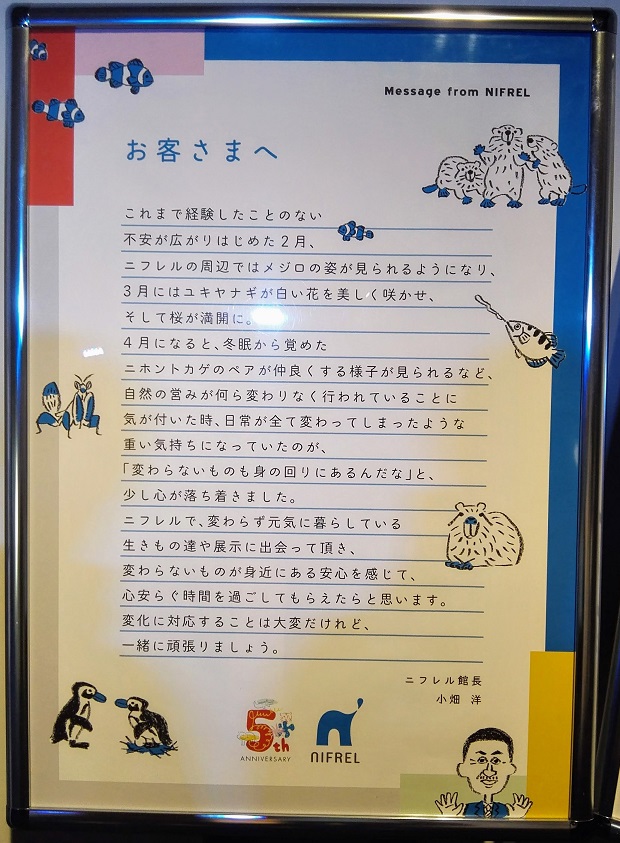 Message from NIFREL
お客さまへ
これまで経験したことのない
不安が広がりはじめた2月、
ニフレルの周辺ではメジロの姿が見られるようになり、
3月にはユキヤナギが白い花を美しく咲かせ、
そして桜が満開に。
4月になると、冬眠から覚めた
ニホントカゲのペアが仲良くする様子が見られるなど、
自然の営みが何ら変わりなく行われていることに
気が付いた時、日常が全て変わってしまったような
重い気持ちになっていたのが、
「変わらないものも身の回りにあるんだな」と、
少し心が落ち着きました。
ニフレルで、変わらず元気に暮らしている
生きもの達や展示に出会って頂き、
変わらないものが身近にある安心を感じて、
心安らぐ時間を過ごしてもらえたらと思います。
変化に対応することは大変だけれど、
一緒に頑張りましょう。
ニフレル館長
小畑 洋
5th
ANNIVERSARY
NIFREL